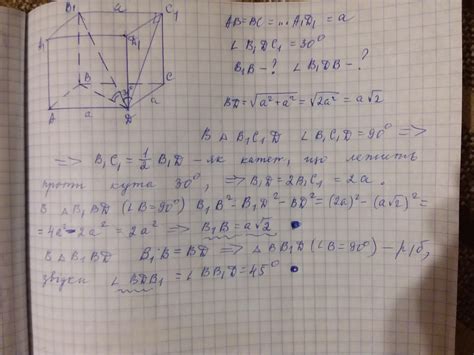 B₁ a C₁
A₁ D₁
B C
30°
A a D a
AB=BC=...A₁D₁=a
∠B₁DC₁=30°
B₁B-? ∠B₁DB-?
BD=√a²+a²=√2a²=a√2
В △B₁C₁D ∠B₁C₁D=90° =>
=> B₁C₁=1/2 B₁D - як катет, що лежить
проти кута 30°, => B₁D=2B₁C₁=2a.
В △B₁BD (∠B=90°) B₁B²=B₁D²-BD²=(2a)²-(a√2)²=
=4a²-2a²=2a² => B₁B=a√2
В △B₁BD B₁B=BD => △BB₁D (∠B=90°) - р/б,
звідки ∠BDB₁=∠BB₁D=45°